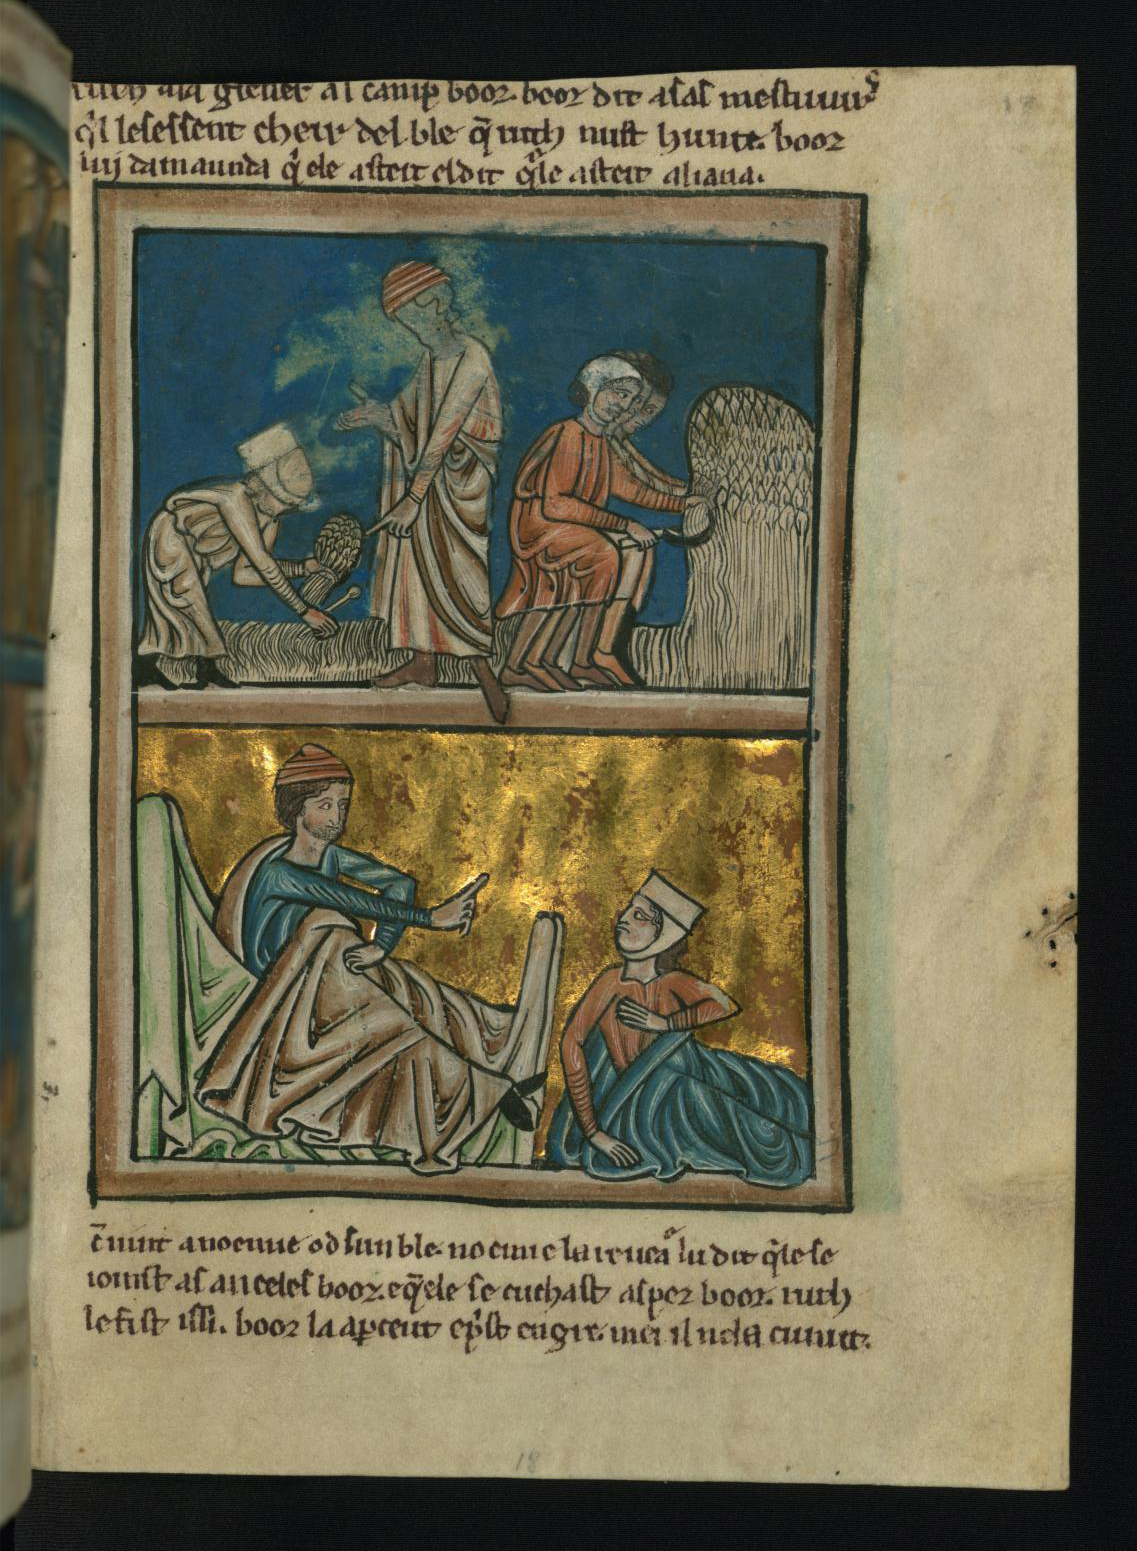 ruth ala glener al camp booz. booz dit a sas mestiuurs
q'l lesessent cheir del ble q̄ ruth nust hunte. booz
luj damaunda q' ele asteit el dit q'le asteit aliana.
noemie od sun ble. noemie la dit q'le se
as anceles booz. e q̄ ele se cuchast as pez booz. ruth
le fist issi. booz la ap̱ceut mei il
18